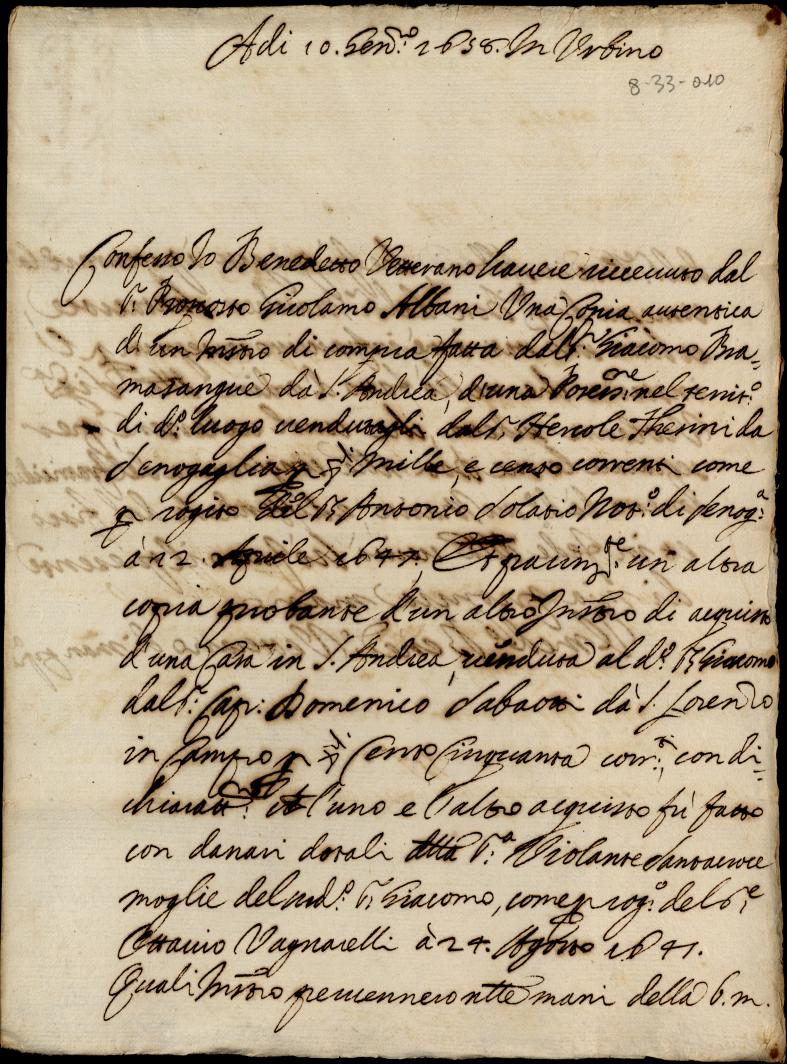 Adi 10. Gen.ro 1658. In Urbino
8-33-010
Confesso Io Benedetto Vetterano havere riceuuto dal
S.r Proposto Girolamo Albani Una Copia autentica
di un Instro di compra fatta dal S.r Giacomo Bra=
masangue da S. Andrea, d'una Poss.ne nel terit.o
di d.o luogo uendutagli dal S.r Hercole Thesini da
Senogaglia p mille, e cento correnti come
p rogito del S.r Antonio Solatio Not.o di Senog.a
à 12. Aprile 1647, Et un altra
copia probante d'un altro Instro di acquisto
d'una Casa in S. Andrea, uenduta al d.o S.r Giacomo
dal S.r Cap.: Domenico Sabatti dà S. Lorenzo
in Campo p Cento Cinquanta corr.ti, con di=
chiarat.ne l'uno e l'altro acquisto fù fatto
con danari dotali della S.ra Violante Santacroce
moglie del sud.o S.r Giacomo, come p rog.o del S.re
Ottauio Vagnarelli à 24. Agosto 1641.
Quali Instro peruennero nelle mani della b.m.